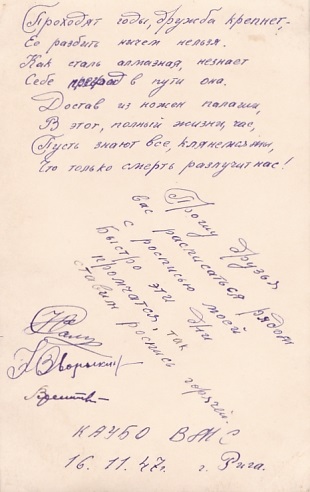 Проходят годы, дружба крепнет,
Её разбить ничем нельзя.
Как сталь алмазная, незнает
Себе преград в пути она.
Достав из ножен палаши,
В этот, полный жизни, час,
Пусть знают все, клянемся мы,
Что только смерть разлучит нас!
Прошу друзья
вас расписаться рядом
с росписью моей
Быстро эти дни
промчатся, так
ставим роспись горячей.
КАУБО ВМС
16. 11. 47 г. г. Рига.